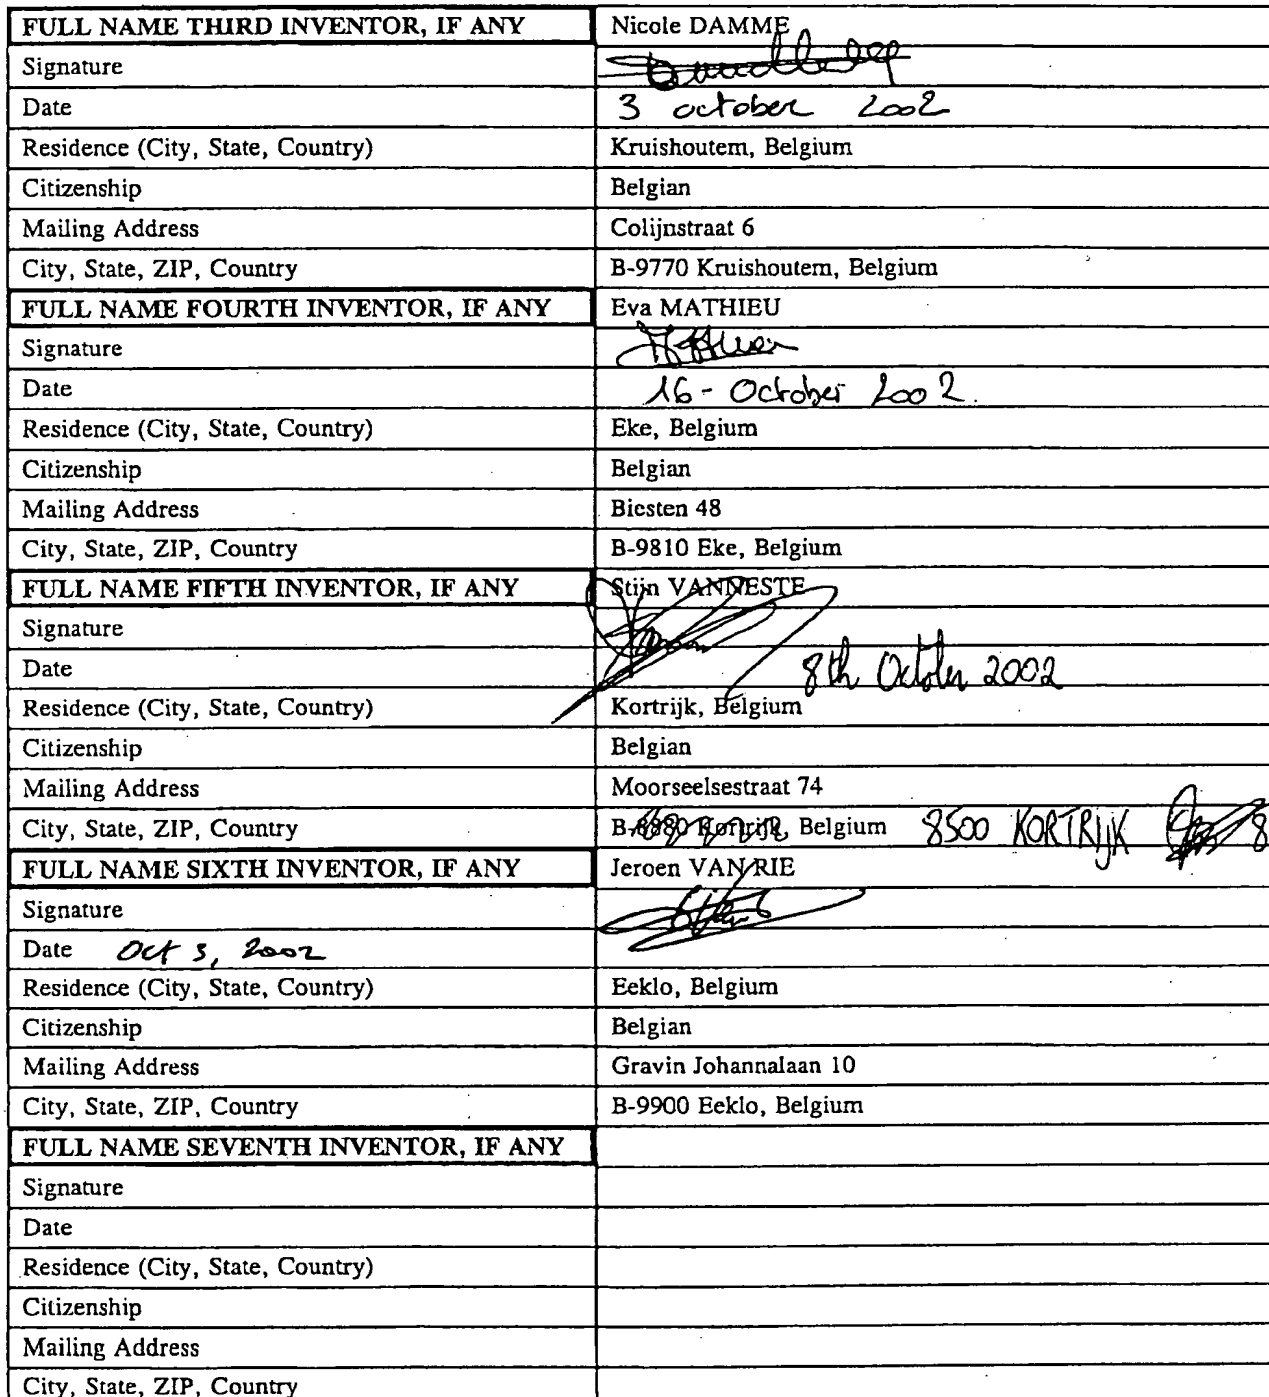 FULL NAME THIRD INVENTOR, IF ANY Nicole DAMME
Signature
Date 3 october 2002
Residence (City, State, Country) Kruishoutem, Belgium
Citizenship Belgian
Mailing Address Colijnstraat 6
City, State, ZIP, Country B-9770 Kruishoutem, Belgium
FULL NAME FOURTH INVENTOR, IF ANY Eva MATHIEU
Signature
Date 16 - October 2002.
Residence (City, State, Country) Eke, Belgium
Citizenship Belgian
Mailing Address Biesten 48
City, State, ZIP, Country B-9810 Eke, Belgium
FULL NAME FIFTH INVENTOR, IF ANY Stijn VANNESTE
Signature
Date 8th October 2002
Residence (City, State, Country) Kortrijk, Belgium
Citizenship Belgian
Mailing Address Moorseelsestraat 74
City, State, ZIP, Country Belgium 8500 KORTRIJK
FULL NAME SIXTH INVENTOR, IF ANY Jeroen VAN RIE
Signature
Date Oct 3, 2002
Residence (City, State, Country) Eeklo, Belgium
Citizenship Belgian
Mailing Address Gravin Johannalaan 10
City, State, ZIP, Country B-9900 Eeklo, Belgium
FULL NAME SEVENTH INVENTOR, IF ANY
Signature
Date
Residence (City, State, Country)
Citizenship
Mailing Address
City, State, ZIP, Country